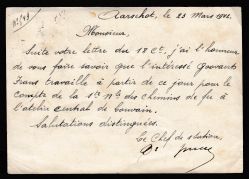 Aarschot, le 23 Mars 1942.
Monsieur,
Suite votre lettre des 18 Ct, j'ai l'honneur
de vous faire savoir que l'intéressé Govaert
Frans travaille à partir de ce jour pour le
compte de la St. Nle des chemins de fer à
l'atelier central de Louvain.
Salutations distinguées.
Le Chef de station,